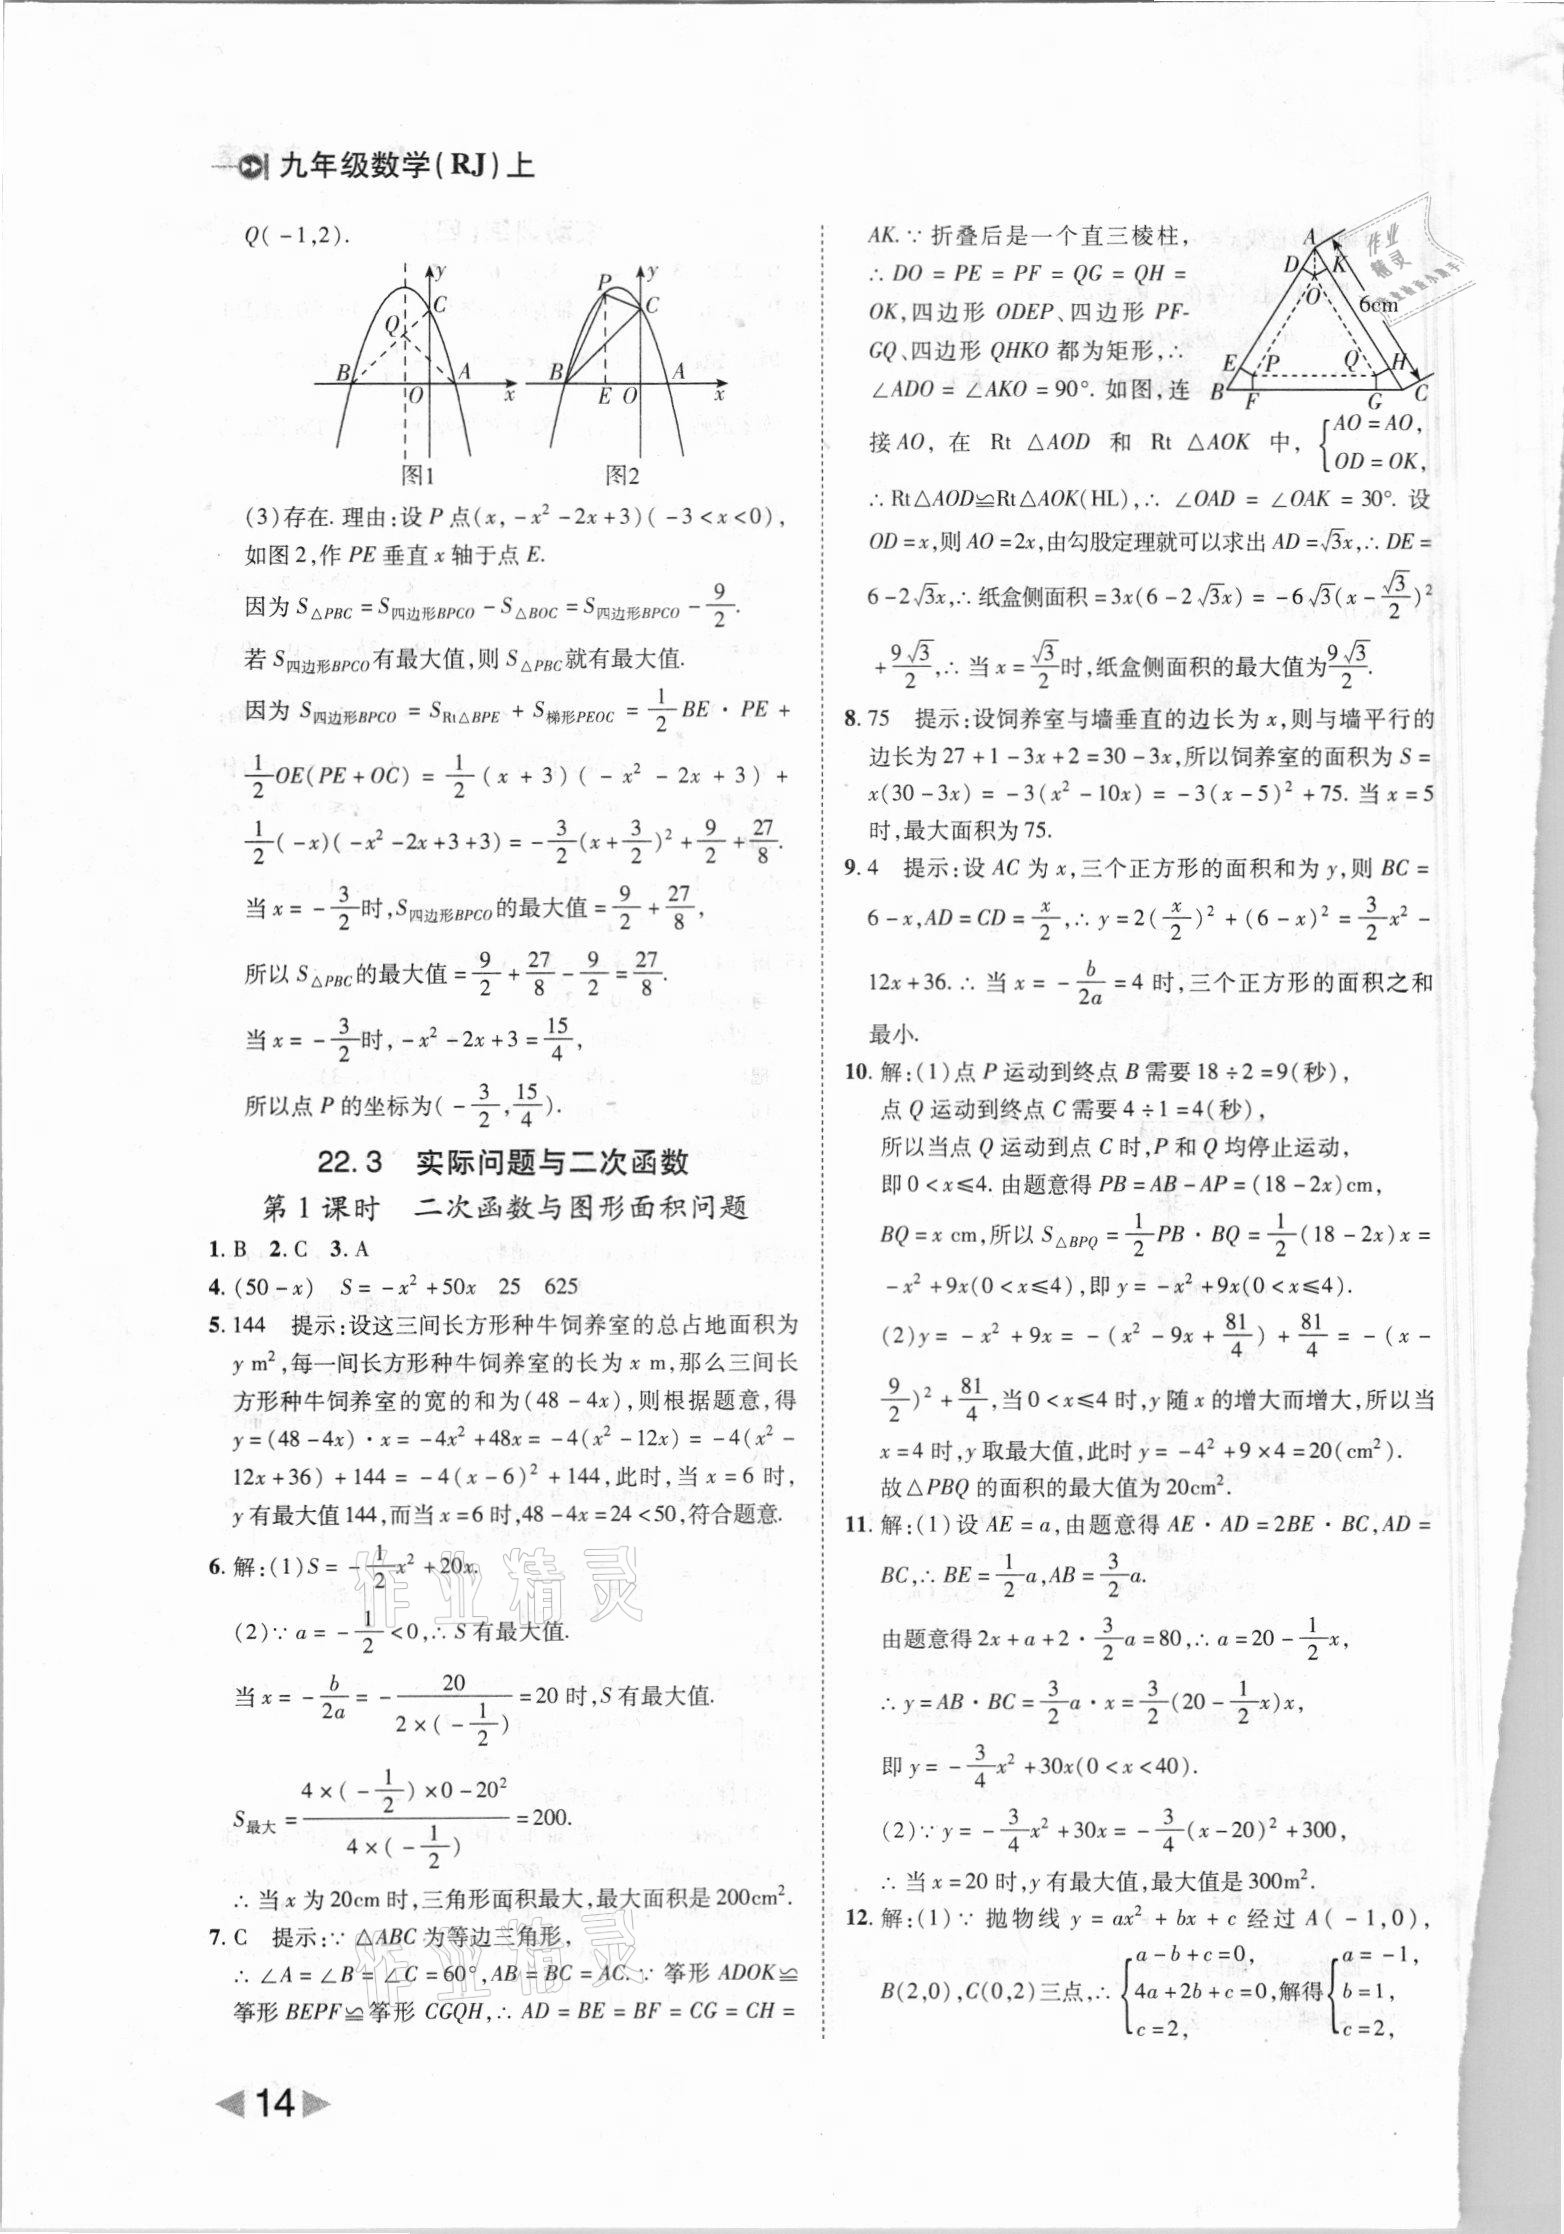 九年级数学(RJ)上
Q(-1,2).
y
C
Q
B
A
O
x
图1
y
P
C
B
A
E
O
x
图2
(3)存在.理由:设P点(x,-x²-2x+3)(-3<x<0),
如图2,作PE垂直x轴于点E.
因为S△PBC=S四边形BPCO-S△BOC=S四边形BPCO-9/2.
若S四边形BPCO有最大值,则S△PBC就有最大值.
因为S四边形BPCO=SRt△BPE+S梯形PEOC=1/2BE·PE+
1/2OE(PE+OC)=1/2(x+3)(-x²-2x+3)+
1/2(-x)(-x²-2x+3+3)=-3/2(x+3/2)²+9/2+27/8.
当x=-3/2时,S四边形BPCO的最大值=9/2+27/8,
所以S△PBC的最大值=9/2+27/8-9/2=27/8.
当x=-3/2时,-x²-2x+3=15/4,
所以点P的坐标为(-3/2,15/4).
22.3 实际问题与二次函数
第1课时 二次函数与图形面积问题
1.B 2.C 3.A
4.(50-x) S=-x²+50x 25 625
5.144 提示:设这三间长方形种牛饲养室的总占地面积为
y m²,每一间长方形种牛饲养室的长为x m,那么三间长
方形种牛饲养室的宽的和为(48-4x),则根据题意,得
y=(48-4x)·x=-4x²+48x=-4(x²-12x)=-4(x²-
12x+36)+144=-4(x-6)²+144,此时,当x=6时,
y有最大值144,而当x=6时,48-4x=24<50,符合题意.
6.解:(1)S=-1/2x²+20x.
(2)∵a=-1/2<0,∴S有最大值.
当x=-b/2a=-20/(2×(-1/2))=20时,S有最大值.
S最大=(4×(-1/2)×0-20²)/(4×(-1/2))=200.
∴当x为20cm时,三角形面积最大,最大面积是200cm².
7.C 提示:∵△ABC为等边三角形,
∴∠A=∠B=∠C=60°,AB=BC=AC.∵筝形ADOK≌
筝形BEPF≌筝形CGQH,∴AD=BE=BF=CG=CH=
14
AK.∵折叠后是一个直三棱柱,
∴DO=PE=PF=QG=QH=
OK,四边形ODEP、四边形PF-
GQ、四边形QHKO都为矩形,∴
∠ADO=∠AKO=90°.如图,连
A
D
K
O
6cm
E
P
Q
H
B
F
G
C
接AO,在Rt△AOD和Rt△AOK中,{AO=AO,
OD=OK,
∴Rt△AOD≌Rt△AOK(HL),∴∠OAD=∠OAK=30°.设
OD=x,则AO=2x,由勾股定理就可以求出AD=√3x,∴DE=
6-2√3x,∴纸盒侧面积=3x(6-2√3x)=-6√3(x-√3/2)²
+9√3/2,∴当x=√3/2时,纸盒侧面积的最大值为9√3/2.
8.75 提示:设饲养室与墙垂直的边长为x,则与墙平行的
边长为27+1-3x+2=30-3x,所以饲养室的面积为S=
x(30-3x)=-3(x²-10x)=-3(x-5)²+75.当x=5
时,最大面积为75.
9.4 提示:设AC为x,三个正方形的面积和为y,则BC=
6-x,AD=CD=x/2,∴y=2(x/2)²+(6-x)²=3/2x²-
12x+36.∴当x=-b/2a=4时,三个正方形的面积之和
最小.
10.解:(1)点P运动到终点B需要18÷2=9(秒),
点Q运动到终点C需要4÷1=4(秒),
所以当点Q运动到点C时,P和Q均停止运动,
即0<x⩽4.由题意得PB=AB-AP=(18-2x)cm,
BQ=x cm,所以S△BPQ=1/2PB·BQ=1/2(18-2x)x=
-x²+9x(0<x⩽4),即y=-x²+9x(0<x⩽4).
(2)y=-x²+9x=-(x²-9x+81/4)+81/4=-(x-
9/2)²+81/4,当0<x⩽4时,y随x的增大而增大,所以当
x=4时,y取最大值,此时y=-4²+9×4=20(cm²).
故△PBQ的面积的最大值为20cm².
11.解:(1)设AE=a,由题意得AE·AD=2BE·BC,AD=
BC,∴BE=1/2a,AB=3/2a.
由题意得2x+a+2·3/2a=80,∴a=20-1/2x,
∴y=AB·BC=3/2a·x=3/2(20-1/2x)x,
即y=-3/4x²+30x(0<x<40).
(2)∵y=-3/4x²+30x=-3/4(x-20)²+300,
∴当x=20时,y有最大值,最大值是300m².
12.解:(1)∵抛物线y=ax²+bx+c经过A(-1,0),
B(2,0),C(0,2)三点,∴{a-b+c=0, 4a+2b+c=0, c=2,解得{a=-1, b=1, c=2,
作业精灵
作业精灵
作业
精灵